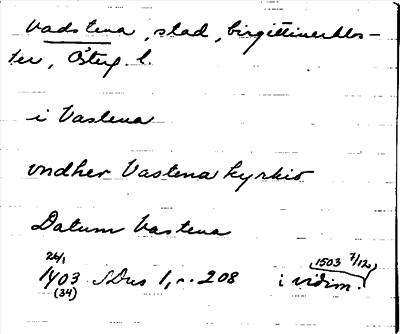 Vadstena, stad, birgittinerklos-
ter, Österg. l.
i Vastena
vndher Vastena kyrkio
Datum Vastena
26/1 1503 7/12
1403 SDns 1, n. 208 i vidim.
(34)